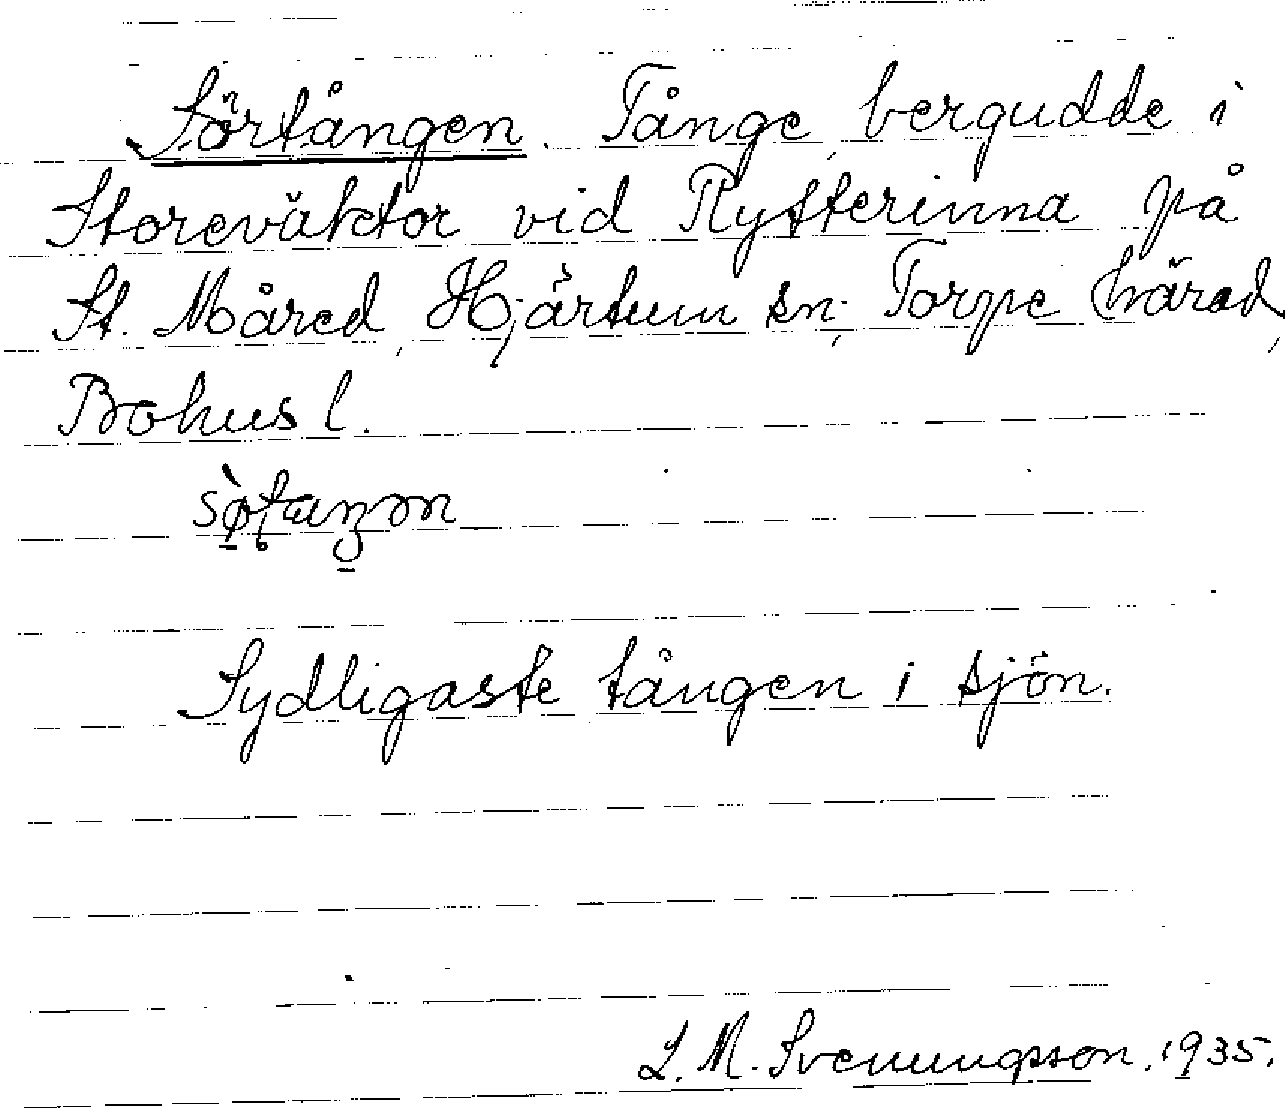 Sörtången. Tånge, bergudde i
Storeväktor vid Rysterinna på
St. Måred, Hjärtum sn; Torpe härad,
Bohus l.
Sydligaste tången i sjön.
L. M. Svenungsson. 1935.